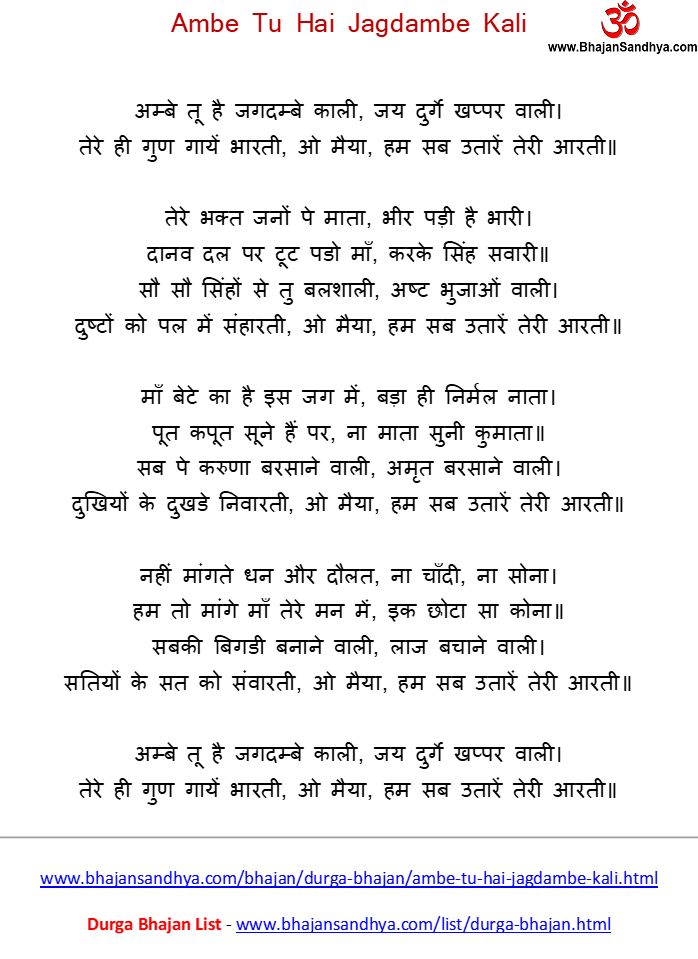 Ambe Tu Hai Jagdambe Kali
ॐ
www.BhajanSandhya.com
अम्बे तू है जगदम्बे काली, जय दुर्गे खप्पर वाली।
तेरे ही गुण गायें भारती, ओ मैया, हम सब उतारें तेरी आरती॥
तेरे भक्त जनों पे माता, भीर पड़ी है भारी।
दानव दल पर टूट पडो माँ, करके सिंह सवारी॥
सौ सौ सिंहों से तु बलशाली, अष्ट भुजाओं वाली।
दुष्टों को पल में संहारती, ओ मैया, हम सब उतारें तेरी आरती॥
माँ बेटे का है इस जग में, बड़ा ही निर्मल नाता।
पूत कपूत सूने हैं पर, ना माता सुनी कुमाता॥
सब पे करुणा बरसाने वाली, अमृत बरसाने वाली।
दुखियों के दुखडे निवारती, ओ मैया, हम सब उतारें तेरी आरती॥
नहीं मांगते धन और दौलत, ना चाँदी, ना सोना।
हम तो मांगे माँ तेरे मन में, इक छोटा सा कोना॥
सबकी बिगडी बनाने वाली, लाज बचाने वाली।
सतियों के सत को संवारती, ओ मैया, हम सब उतारें तेरी आरती॥
अम्बे तू है जगदम्बे काली, जय दुर्गे खप्पर वाली।
तेरे ही गुण गायें भारती, ओ मैया, हम सब उतारें तेरी आरती॥
www.bhajansandhya.com/bhajan/durga-bhajan/ambe-tu-hai-jagdambe-kali.html
Durga Bhajan List - www.bhajansandhya.com/list/durga-bhajan.html